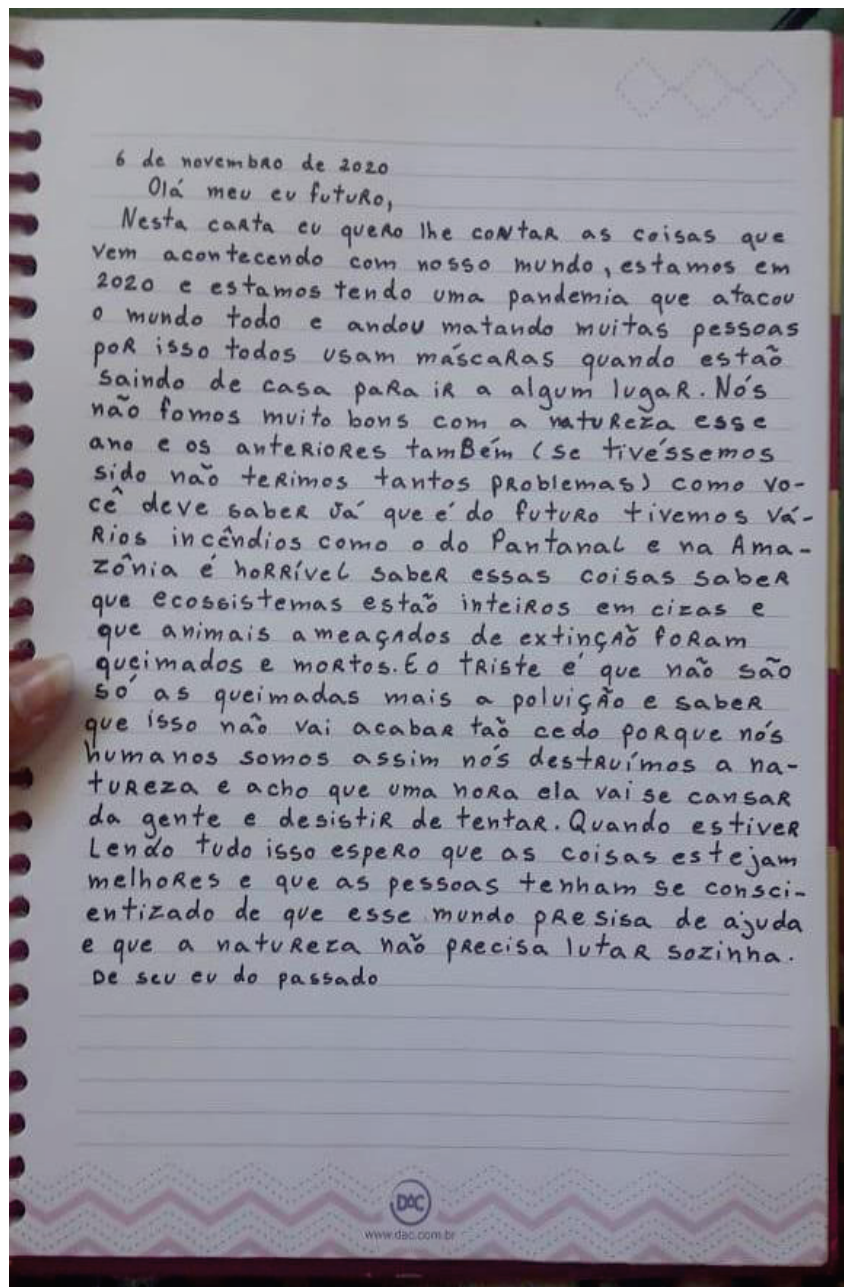 6 de novembro de 2020
Olá meu eu futuro,
Nesta carta eu quero lhe contar as coisas que
vem acontecendo com nosso mundo, estamos em
2020 e estamos tendo uma pandemia que atacou
o mundo todo e andou matando muitas pessoas
por isso todos usam máscaras quando estão
saindo de casa para ir a algum lugar. Nós
não fomos muito bons com a natureza esse
ano e os anteriores também (se tivéssemos
sido não terimos tantos problemas) como vo-
cê deve saber já que é do futuro tivemos vá-
rios incêndios como o do Pantanal e na Ama-
zônia é horrível saber essas coisas saber
que ecossistemas estão inteiros em cizas e
que animais ameaçados de extinção foram
queimados e mortos. E o triste é que não são
só as queimadas mais a poluição e saber
que isso não vai acabar tão cedo porque nós
humanos somos assim nós destruímos a na-
tureza e acho que uma hora ela vai se cansar
da gente e desistir de tentar. Quando estiver
Lendo tudo isso espero que as coisas estejam
melhores e que as pessoas tenham se consci-
entizado de que esse mundo presisa de ajuda
e que a natureza não precisa lutar sozinha.
De seu eu do passado
DAC
www.dac.com.br